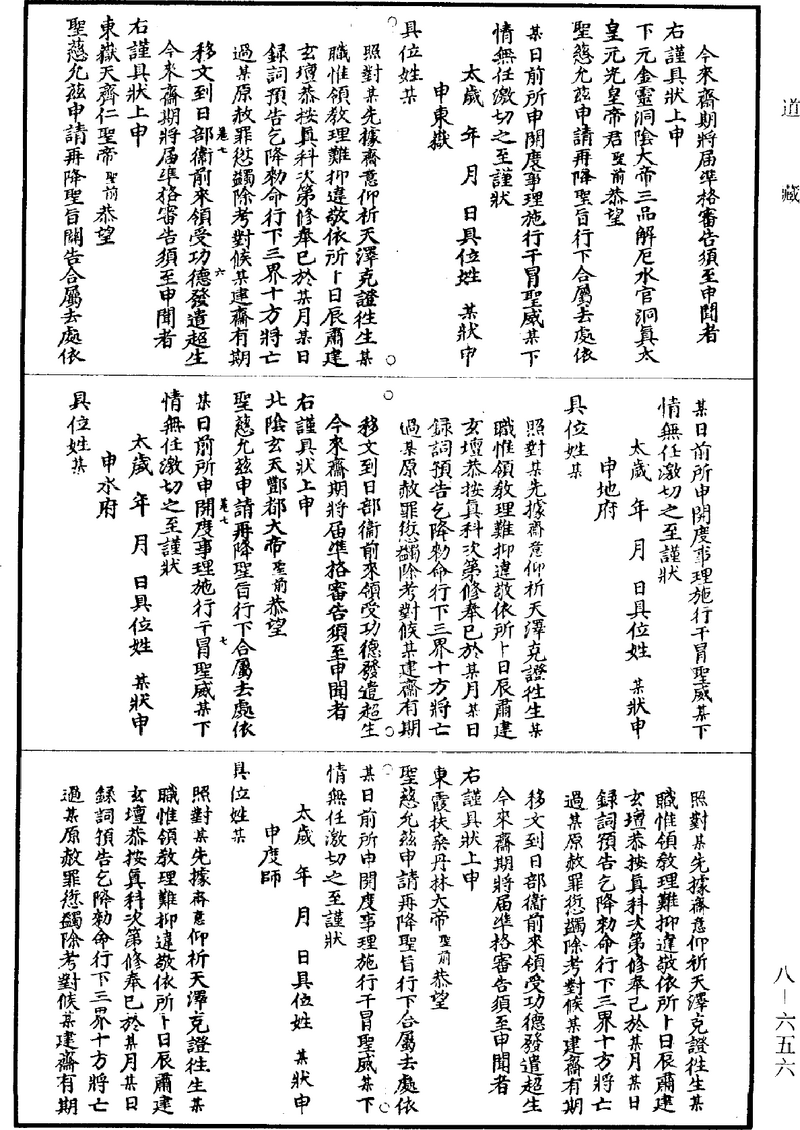 道藏
今來齋期將屆準格審告須至申聞者
右謹具狀上申
下元金靈洞陰大帝三品解厄水官洞真太
皇元光皇帝君聖前恭望
聖慈允茲申請再降聖旨行下合屬去處依
某日前所申開度事理施行干冒聖威某下
情無任激切之至謹狀
太歲 年 月 日具位姓 某狀申
申東嶽
具位姓某
照對某先據齋意仰祈天澤克證往生某
職惟領教理難抑違敬依所卜日辰肅建
玄壇恭按真科次第修奉已於某月某日
録詞預告乞降勑命行下三界十方將亡
過某原赦罪愆蠲除考對候某建齋有期
卷七 六
移文到日部衛前來領受功德發遣超生
今來齋期將屆準格審告須至申聞者
右謹具狀上申
東嶽天齊仁聖帝聖前恭望
聖慈允茲申請再降聖旨關告合屬去處依
某日前所申開度事理施行干冒聖威某下
情無任激切之至謹狀
太歲 年 月 日具位姓 某狀申
申地府
具位姓某
照對某先據齋意仰祈天澤克證往生某
職惟領教理難抑違敬依所卜日辰肅建
玄壇恭按真科次第修奉已於某月某日
録詞預告乞降勑命行下三界十方將亡
過某原赦罪愆蠲除考對候某建齋有期
移文到日部衛前來領受功德發遣超生
今來齋期將屆準格審告須至申聞者
右謹具狀上申
北陰玄天酆都大帝聖前恭望
聖慈允茲申請再降聖旨行下合屬去處依
卷七 七
某日前所申開度事理施行干冒聖威某下
情無任激切之至謹狀
太歲 年 月 日具位姓 某狀申
申水府
具位姓某
照對某先據齋意仰祈天澤克證往生某
職惟領教理難抑違敬依所卜日辰肅建
玄壇恭按真科次第修奉已於某月某日
録詞預告乞降勑命行下三界十方將亡
過某原赦罪愆蠲除考對候某建齋有期
移文到日部衛前來領受功德發遣超生
今來齋期將屆準格審告須至申聞者
右謹具狀上申
東霞扶桑丹林大帝聖前恭望
聖慈允茲申請再降聖旨行下合屬去處依
某日前所申開度事理施行干冒聖威某下
情無任激切之至謹狀
太歲 年 月 日具位姓 某狀申
申度師
具位姓某
照對某先據齋意仰祈天澤克證往生某
職惟領教理難抑違敬依所卜日辰肅建
玄壇恭按真科次第修奉已於某月某日
録詞預告乞降勑命行下三界十方將亡
過某原赦罪愆蠲除考對候某建齋有期
八－六五六